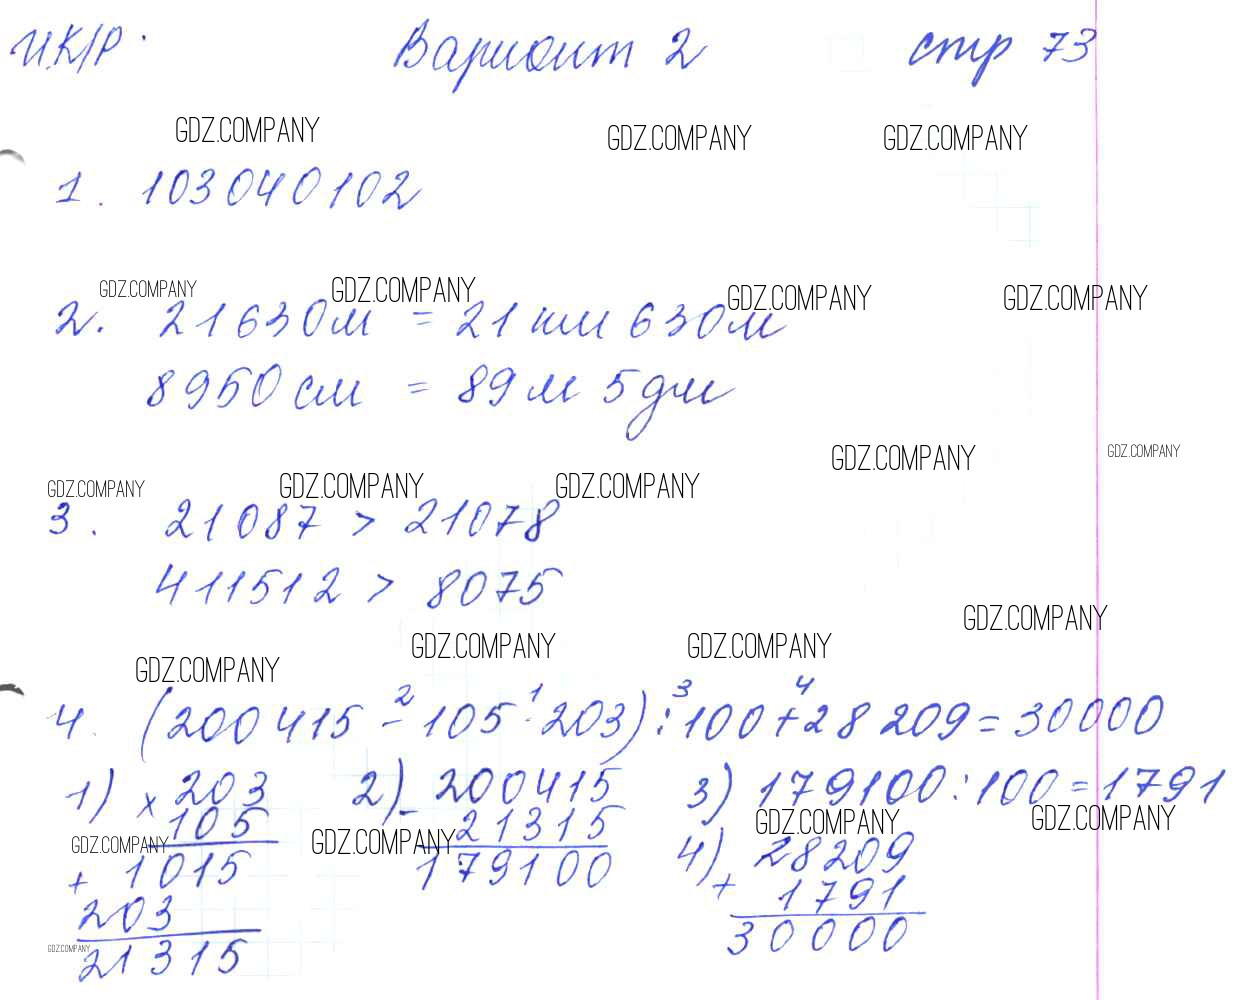 И.К/Р. Вариант 2 стр 73
GDZ.COMPANY GDZ.COMPANY GDZ.COMPANY
1. 103040102
GDZ.COMPANY GDZ.COMPANY GDZ.COMPANY GDZ.COMPANY
2. 21630м = 21 км 630м
8950 см = 89 м 5 дм
GDZ.COMPANY GDZ.COMPANY
GDZ.COMPANY GDZ.COMPANY GDZ.COMPANY
3. 21087 > 21078
411512 > 8075
GDZ.COMPANY
GDZ.COMPANY GDZ.COMPANY GDZ.COMPANY
2 1 3 4
4. (200415 - 105 · 203) : 100 + 28 209 = 30000
1) × 203 2) - 200415 3) 179100 : 100 = 1791
105 21315 GDZ.COMPANY GDZ.COMPANY
GDZ.COMPANY GDZ.COMPANY 4) + 28209
+ 1015 179100 1791
203 30000
GDZ.COMPANY 21315